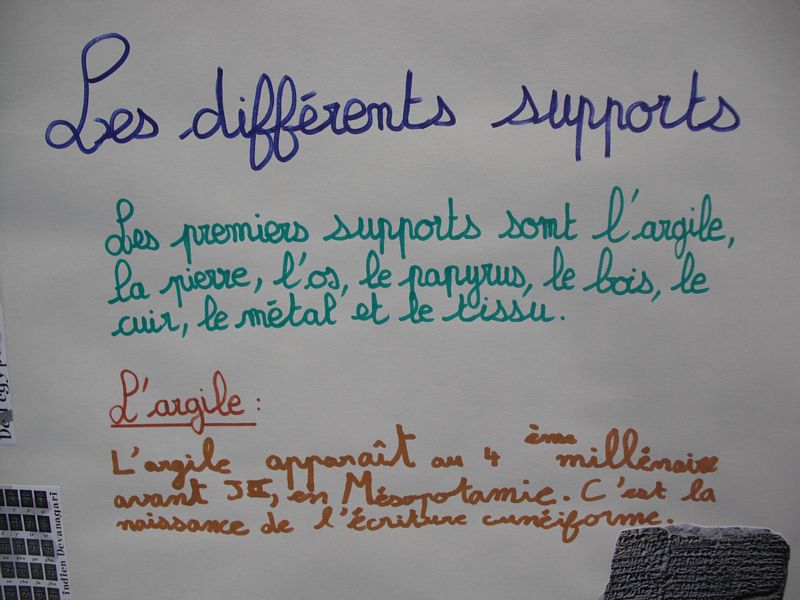 Les différents supports
Les premiers supports sont l'argile,
la pierre, l'os, le papyrus, le bois, le
cuir, le métal et le tissu.
L'argile :
L'argile apparaît au 4 ème millénaire
avant J.C, en Mésopotamie. C'est la
naissance de l'écriture cunéiforme.
indien Devanagari